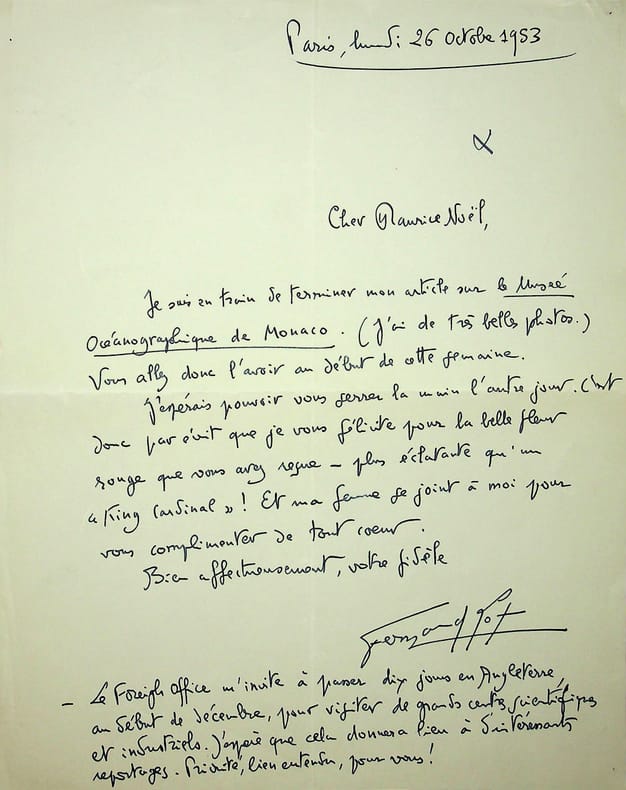 Paris, lundi 26 Octobre 1953
Cher Maurice Noël,
Je suis en train de terminer mon article sur le Museé
Océanographique de Monaco. (J'ai de très belles photos.)
Vous allez donc l'avoir au début de cette semaine.
J'espérais pouvoir vous serrer la main l'autre jour. C'est
donc par écrit que je vous félicite pour la belle fleur
rouge que vous avez reçue – plus éclatante qu'un
« King Cardinal » ! Et ma femme se joint à moi pour
vous complimenter de tout coeur.
Bien affectueusement, votre fidèle
– Le Foreign Office m'invite à passer dix jours en Angleterre,
au début de décembre, pour visiter de grands centres scientifiques
et industriels. J'espère que cela donnera lieu à d'intéressants
reportages. Priorité, bien entendu, pour vous !